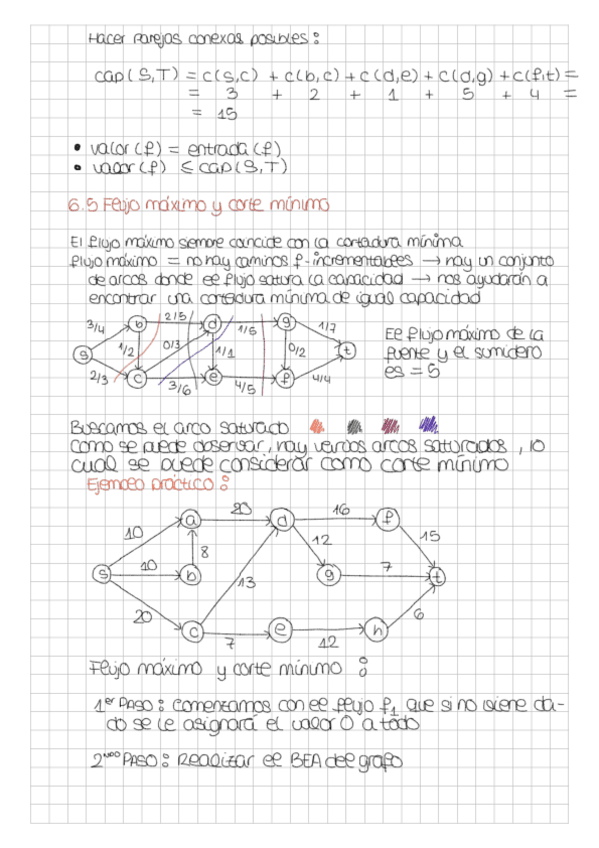 Hacer parejas conexas posibles:
cap(S,T) = c(s,c) + c(b,c) + c(d,e) + c(d,g) + c(f,t) =
= 3 + 2 + 1 + 5 + 4 =
= 15
• valor(f) = entrada(f)
• valor(f) ≤ cap(S,T)
6.5 Flujo máximo y corte mínimo
El flujo máximo siempre coincide con la cortadura mínima
flujo máximo = no hay caminos f-incrementables → hay un conjunto
de arcos donde el flujo satura la capacidad → nos ayudarán a
encontrar una cortadura mínima de igual capacidad
b 2/5 d g 1/7
3/4 1/5
s 1/2 0/3 1/1 0/2 t
2/3 c 3/6 e 4/5 f 4/4
El flujo máximo de la
fuente y el sumidero
es = 5
Buscamos el arco saturado
como se puede observar, hay varios arcos saturados, lo
cual se puede considerar como corte mínimo
Ejemplo práctico:
a 20 d 16 f
10 8 12 15
s 10 b g 7 t
20 13 6
c 7 e 12 h
Flujo máximo y corte mínimo :
1er PASO: comenzamos con el flujo f1 que si no viene da-
do se le asignará el valor 0 a todo
2ndo PASO: Realizar el BEA del grafo